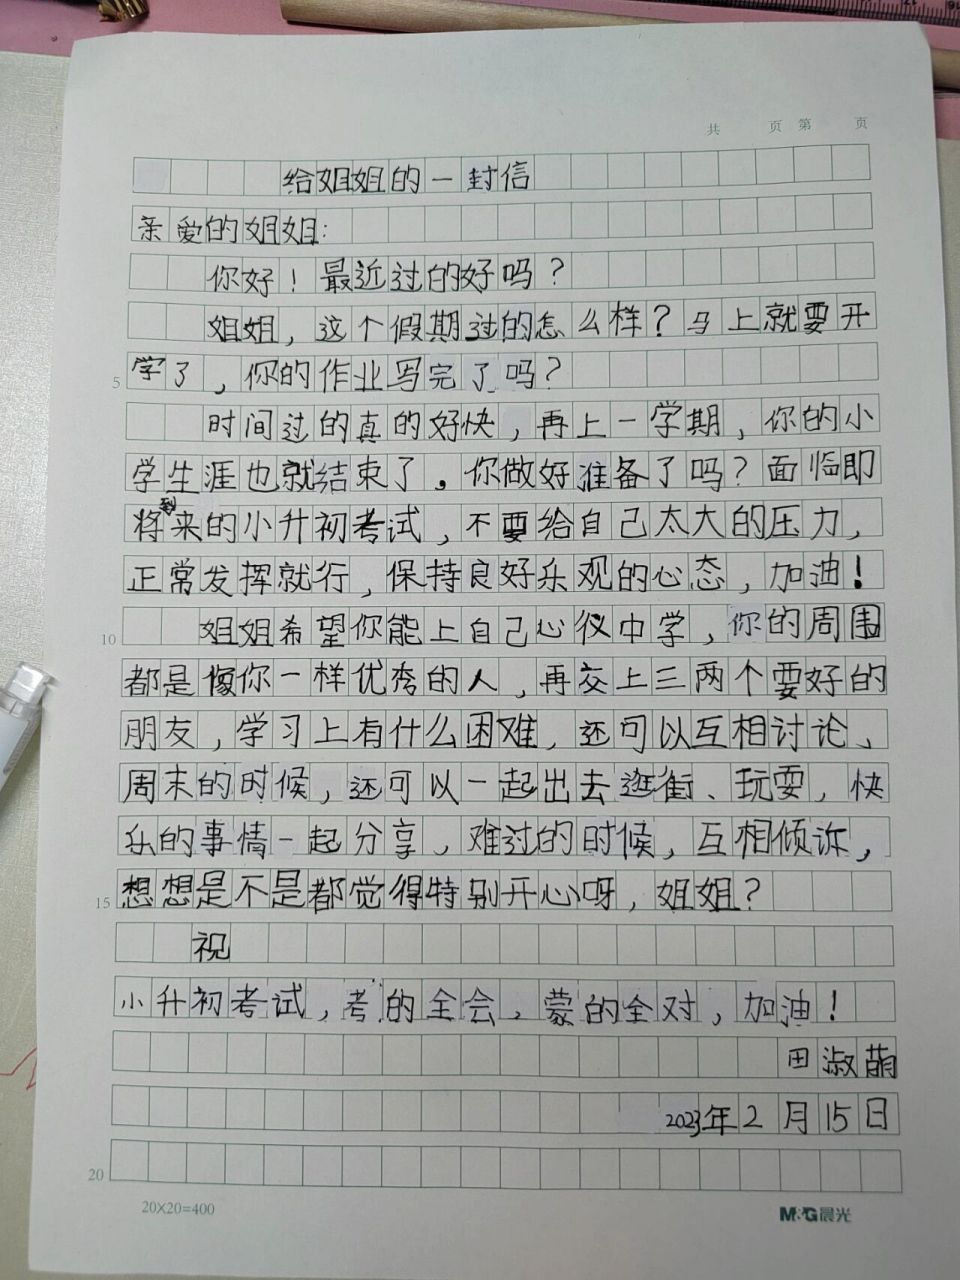 共 页 第 页
给姐姐的一封信
亲爱的姐姐：
你好！最近过的好吗？
姐姐，这个假期过的怎么样？马上就要开
5 学了，你的作业写完了吗？
时间过的真的好快，再上一学期，你的小
学生涯也就结束了。你做好准备了吗？面临即
将到来的小升初考试，不要给自己太大的压力，
正常发挥就行，保持良好乐观的心态，加油！
10 姐姐希望你能上自己心仪中学，你的周围
都是像你一样优秀的人，再交上三两个要好的
朋友，学习上有什么困难，还可以互相讨论、
周末的时候，还可以一起出去逛街、玩耍，快
乐的事情一起分享，难过的时候，互相倾诉，
15 想想是不是都觉得特别开心呀，姐姐？
祝
小升初考试，考的全会，蒙的全对，加油！
田淑萌
2023年2月15日
20
20×20=400
M&G晨光